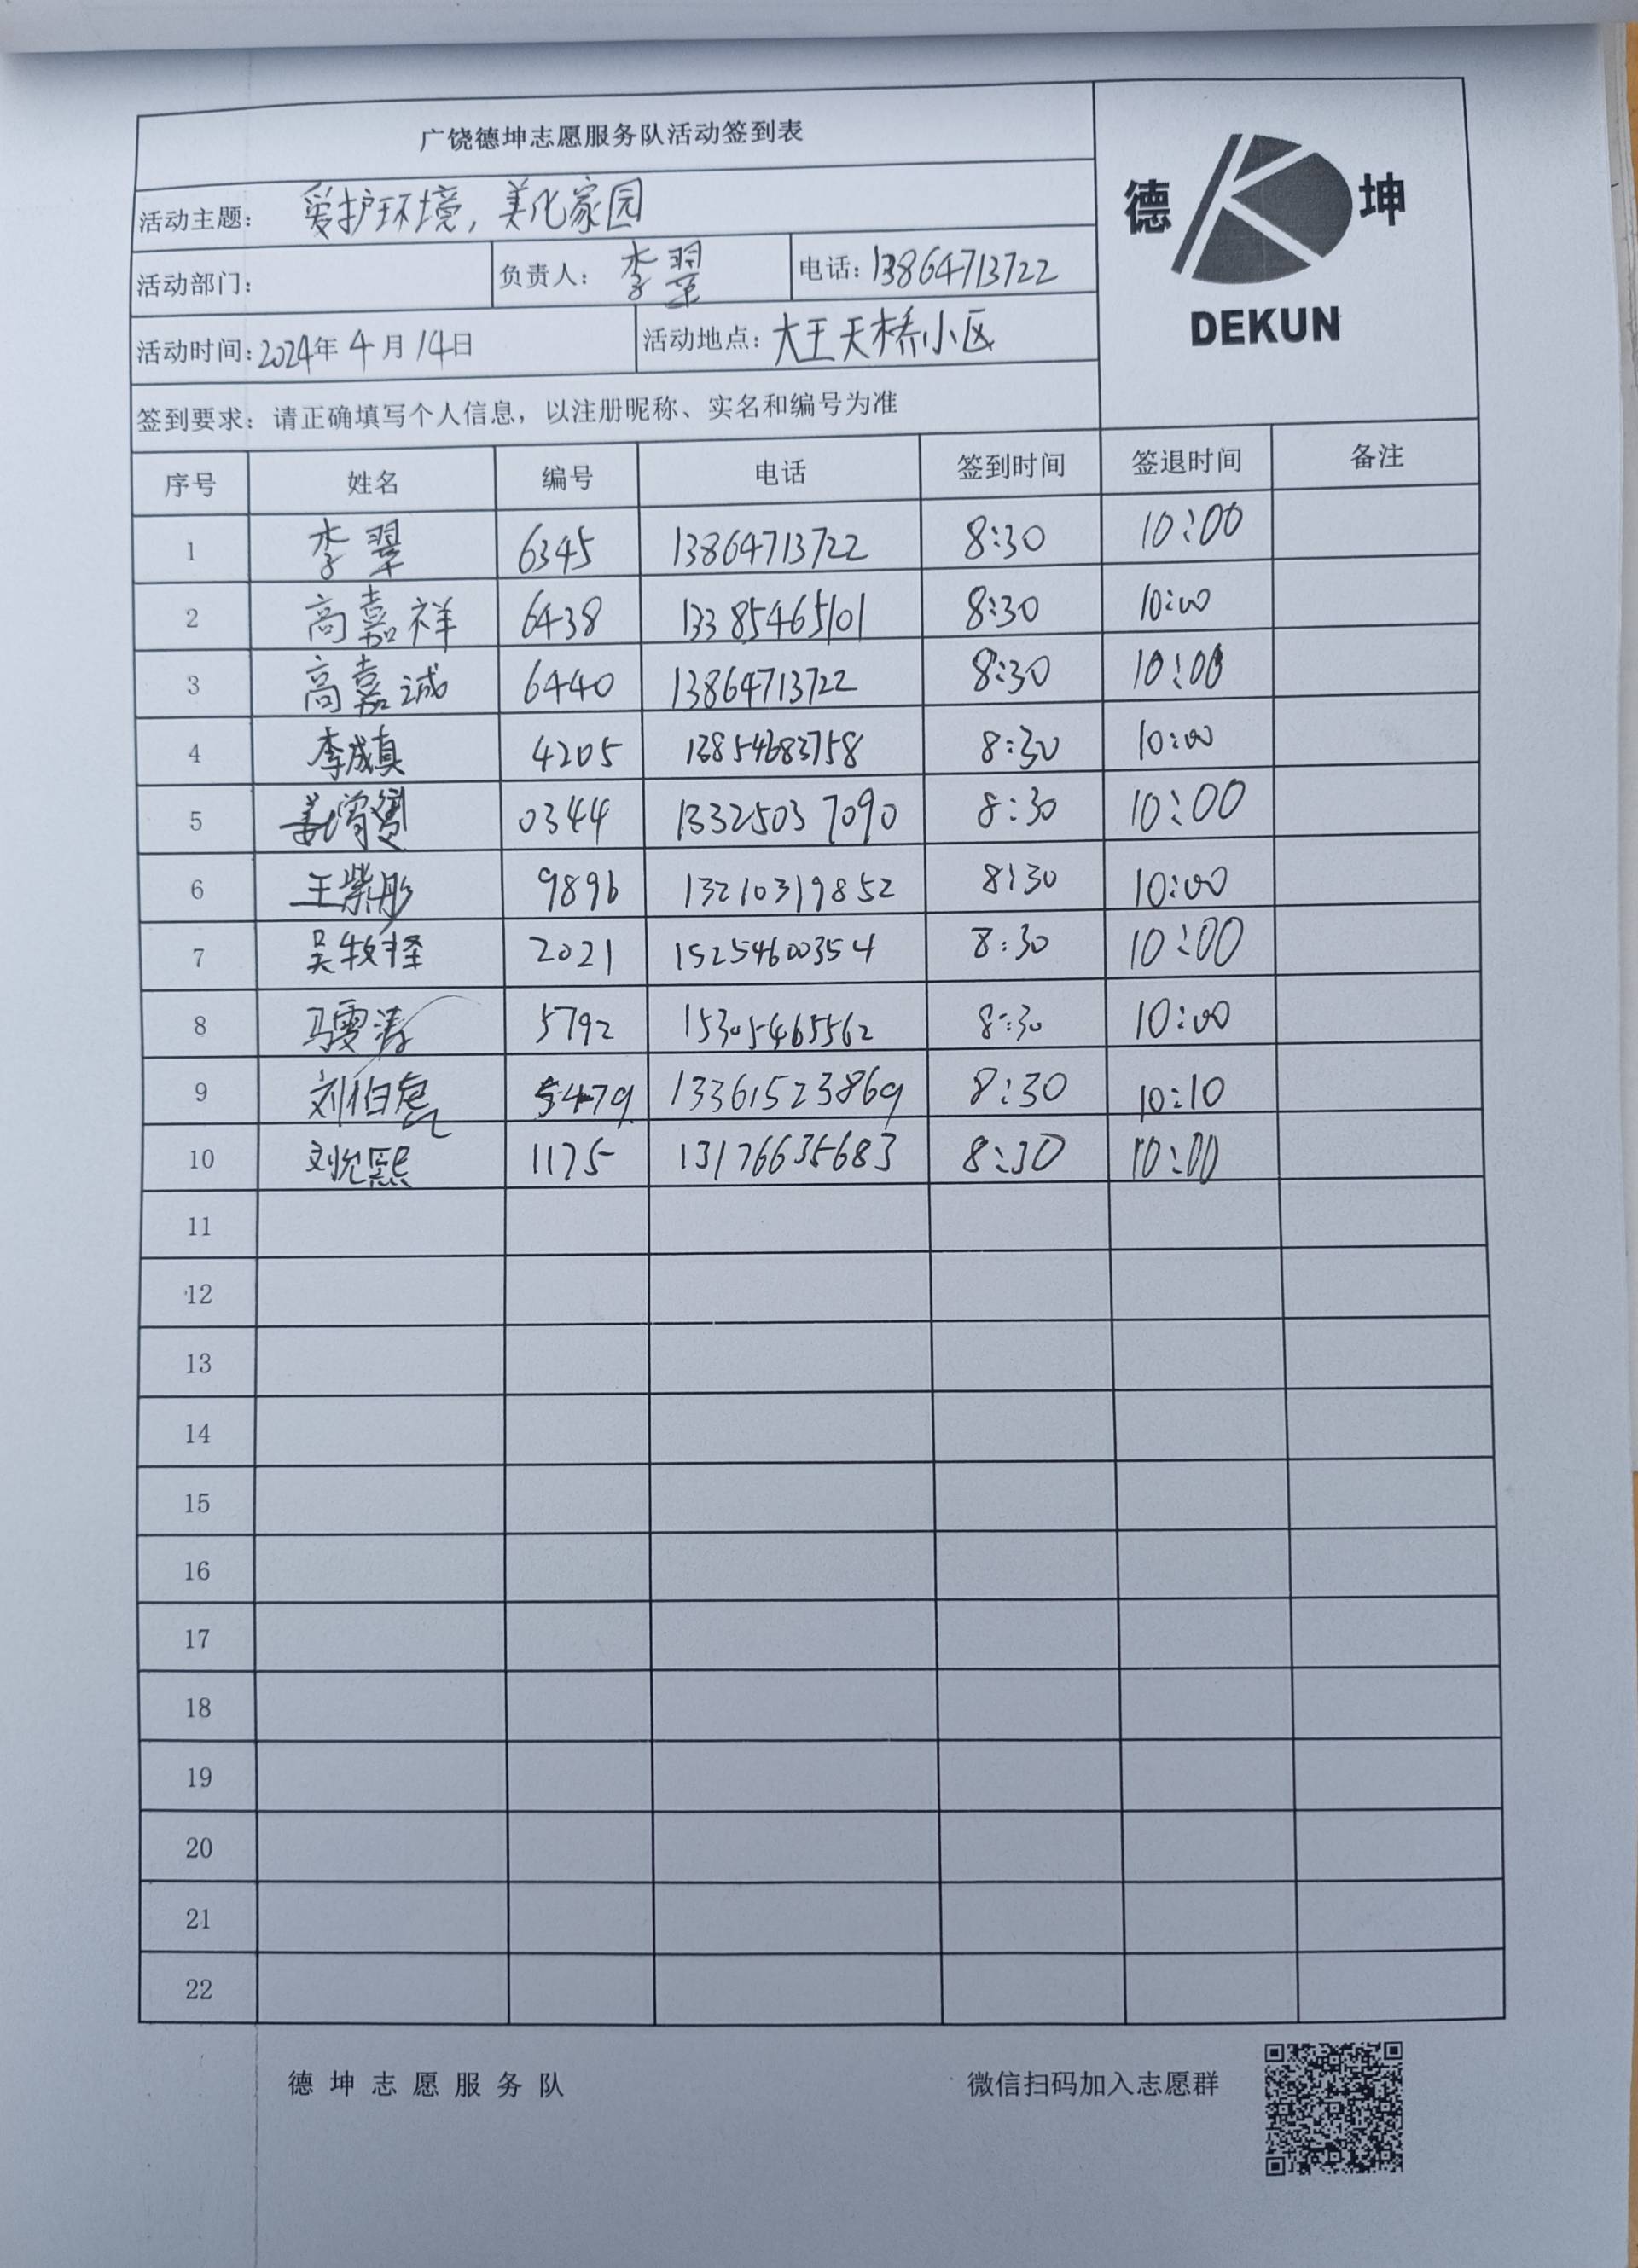 广饶德坤志愿服务队活动签到表
德 坤
DEKUN
活动主题： 爱护环境，美化家园
活动部门： 负责人： 李翠 电话：13864713722
活动时间：2024年 4月 14日 活动地点：大王天桥小区
签到要求：请正确填写个人信息，以注册昵称、实名和编号为准
序号 姓名 编号 电话 签到时间 签退时间 备注
1 李翠 6345 13864713722 8:30 10:00
2 高嘉祥 6438 13385465101 8:30 10:00
3 高嘉诚 6440 13864713722 8:30 10:00
4 李成真 4205 13854683758 8:30 10:00
5 0344 13325037090 8:30 10:00
6 王紫彤 9896 13210319852 8:30 10:00
7 吴牧择 2021 15254600354 8:30 10:00
8 马雯涛 5792 15305465562 8:30 10:00
9 刘伯 5479 13361523869 8:30 10:10
10 刘允熙 1175 13176635683 8:30 10:00
11
12
13
14
15
16
17
18
19
20
21
22
德坤志愿服务队 微信扫码加入志愿群